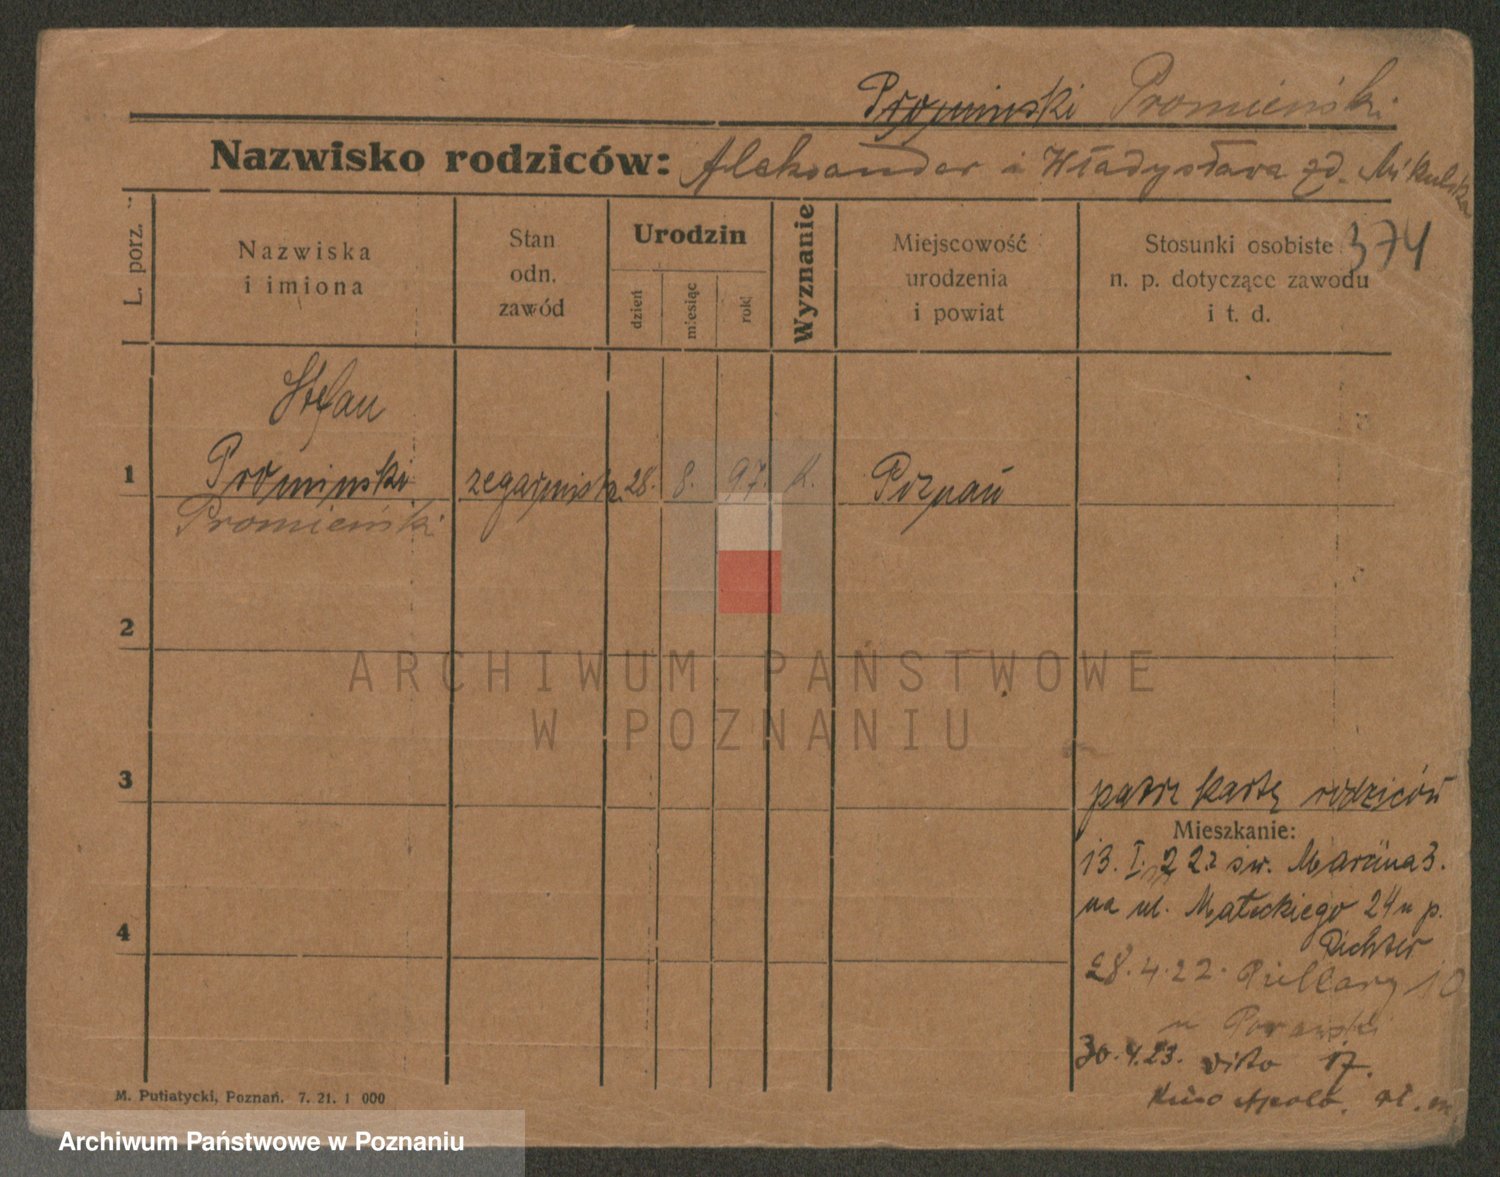 Prominski Promieński
Nazwisko rodziców: Aleksander i Władysława zd. Mikulska
374
L. porz.
Nazwiska i imiona
Stan odn. zawód
Urodzin
dzień
miesiąc
rok
Wyznanie
Miejscowość urodzenia i powiat
Stosunki osobiste n. p. dotyczące zawodu i t. d.
Stefan
1 Prominski zegarmistrz. 28. 8. 97. k. Poznań
Promieński
2
ARCHIWUM PAŃSTWOWE
W POZNANIU
3
patrz kartę rodziców
Mieszkanie:
13. I. 22 z św. Marcina 3.
na ul. Małeckiego 24 u p.
Richter
4
28.4.22.
30.4.23. dito 17.
Kino Apollo.
M. Putiatycki, Poznań. 7. 21. 1 000
Archiwum Państwowe w Poznaniu